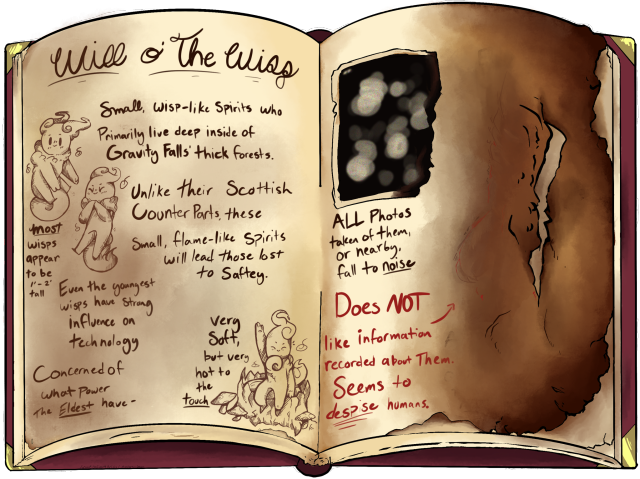 Will O' The Wisp
Small, Wisp-like Spirits who
Primarily live deep inside of
Gravity Falls' thick forests.
Unlike their Scottish
Counter Parts, these
Small, flame-like Spirits
will lead those lost
to Saftey.
most
wisps
appear
to be
1"-2"
tall
Even the youngest
wisps have strong
influence on
technology
Concerned of
what power
The Eldest have-
very
Soft,
but very
hot to
the
touch
ALL Photos
taken of them,
or nearby,
fall to noise
Does NOT
like information
recorded about Them.
Seems to
despise humans.